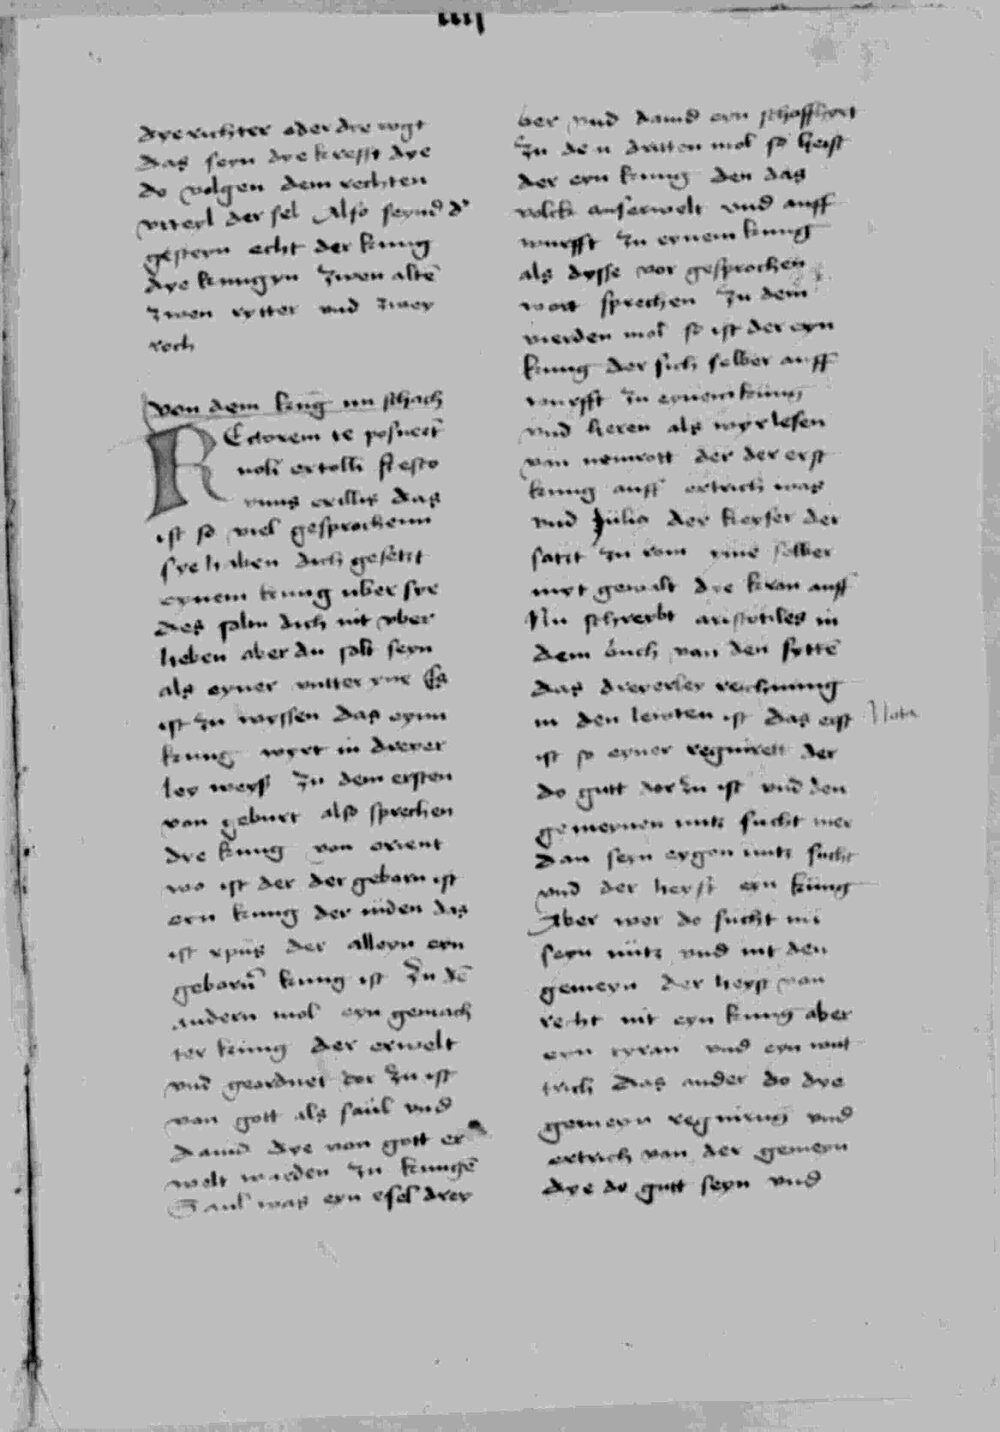 iiii
dye richter oder dye vogt
das seyn dye krefft dye
do volgen dem rechten
vrteyl der sel Also seynd d'
gesteyn echt der kung
dye kungyn zwen altē
zwen rytter vnd zwey
roch
von dem kng im schach
REctorem te posuert
noli extolli sz esto
vnus ex illis das
ist so viel gesprochenn
sye haben dich gesetzt
eynem kung uber sye
des soltu dich nit vber
heben aber du solt seyn
als eyner vntter yne Es
ist zu wyssen das eynn
kung wyrt in dreyer
ley weyß zu dem ersten
von geburt also sprechen
dye kung von orient
wo ist der der geborn ist
eyn kung der iuden das
ist xpūs der alleyn eyn
geborn kung ist Zu dē
andern mol eyn gemach
ter kung der erwelt
vnd geordnet dor zu ist
von gott als saul vnd
dauid dye von gott er
welt worden zu kungē
Saul was eyn esel drey
ber vnd dauid eyn schoffhyrt
Zu den dritten mol so heist
der eyn kung den das
volck auserwelt vnd auff
wurfft zu eynem kung
als dysse vor gesprochen
wort sprechen Zu dem
vierden mol so ist der eyn
kung der sich selber auff
wurfft zu eynem kung
vnd heren als wyr lesen
van nemrott der der erst
kung auff ertrich was
vnd Julio der keyser der
satzt zu rom yme selber
myt gewalt dye kron auff
Nu schreybt aristotiles in
dem buch van den syttē
das dreyerley rechnung
in den lewten ist das erst
Nota
ist so eyner regnirett der
do gutt dor zu ist vnd den
gemeynen nutz sucht mer
dan seyn eygen nutz sucht
vnd der heyst eyn kung
Aber wer do sucht nu
seyn nutz vnd nit den
gemeyn der heyst van
recht nit eyn kung aber
eyn tyran vnd eyn wut
trich Das ander do dye
gemeyn regnirug vnd
ertrich van der gemeyn
dye do gutt seyn vnd